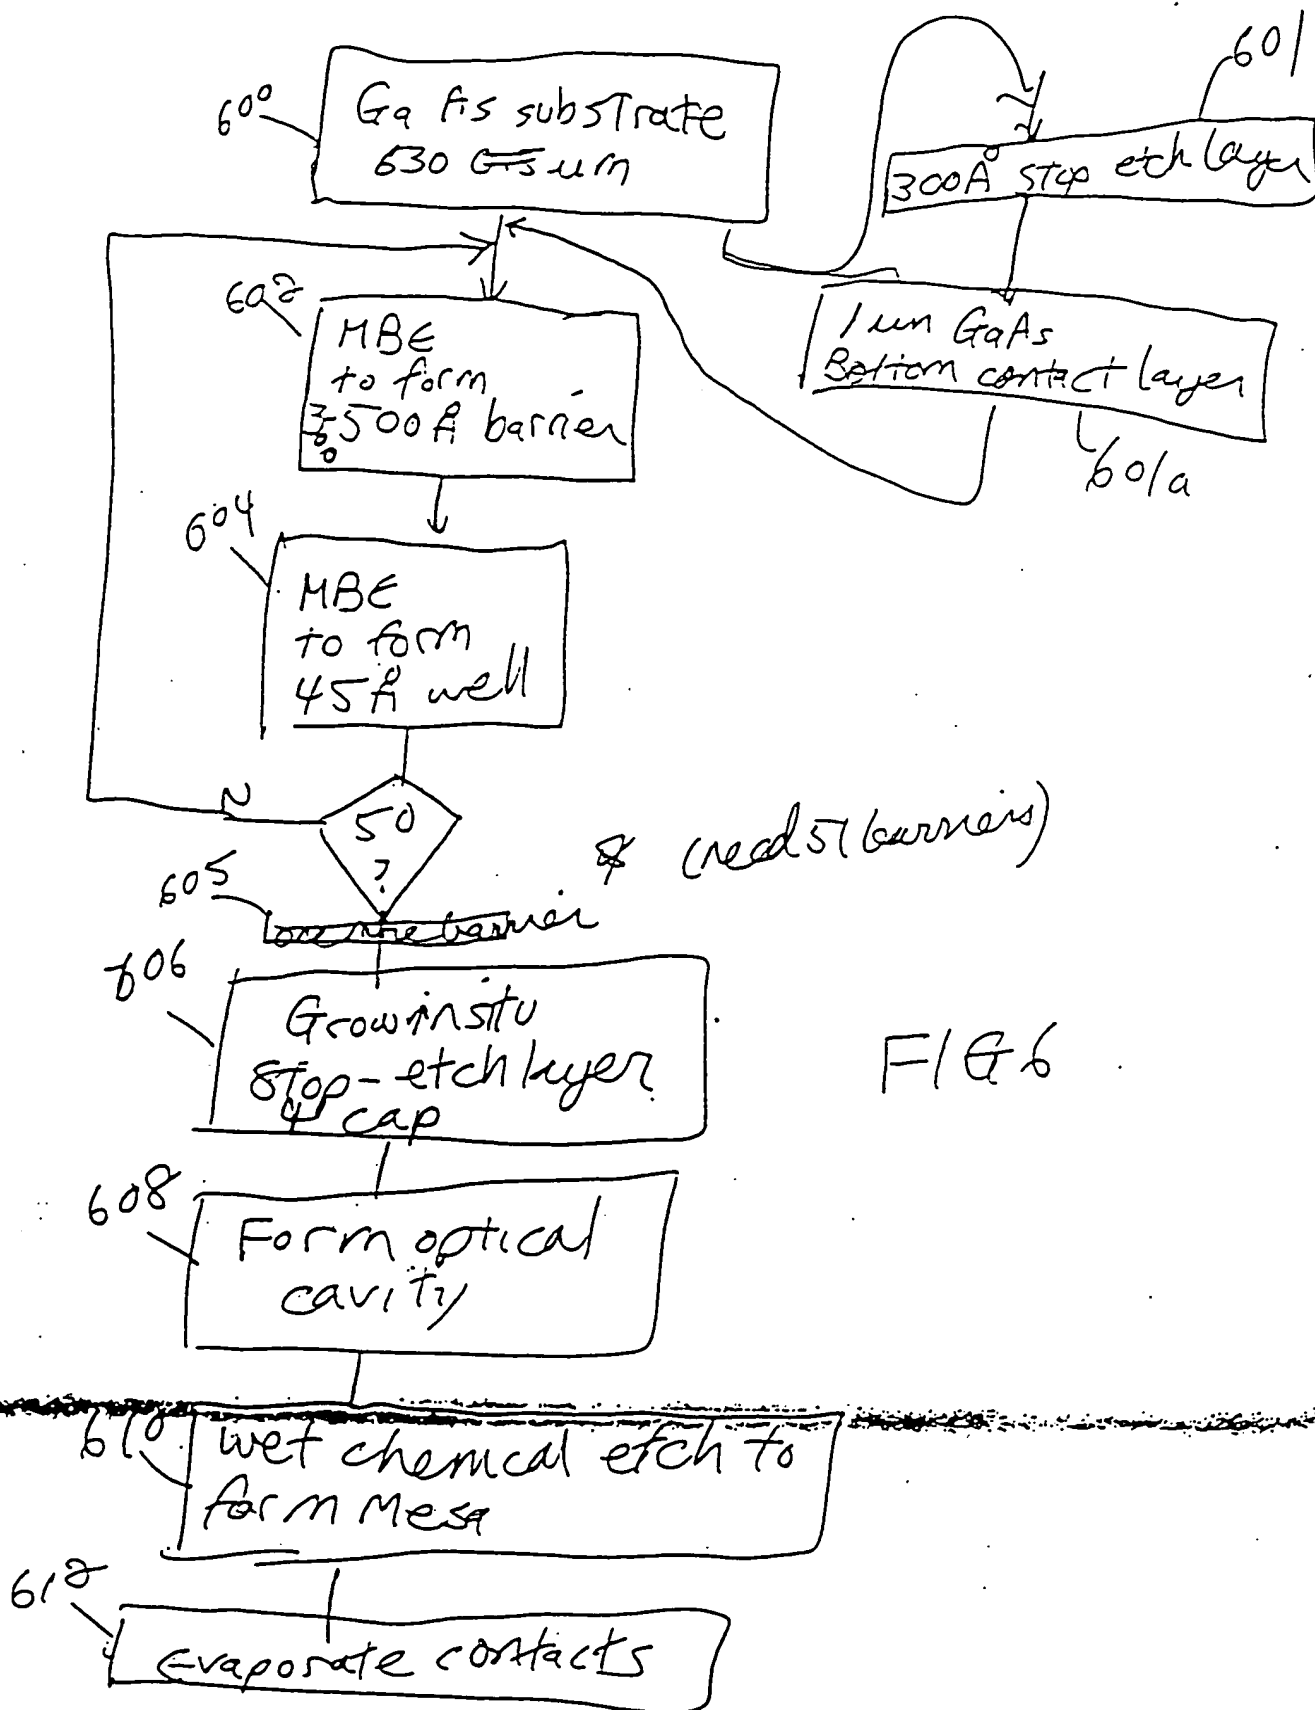 600
Ga As substrate
630 um
601
300Å stop etch layer
1 um GaAs
Bottom contact layer
601a
602
MBE
to form
500Å barrier
604
MBE
to form
45Å well
N
50
?
(need 51 barriers)
605
one more barrier
606
Grow insitu
stop-etch layer
& cap
FIG 6
608
Form optical
cavity
610
wet chemical etch to
form Mesa
612
Evaporate contacts